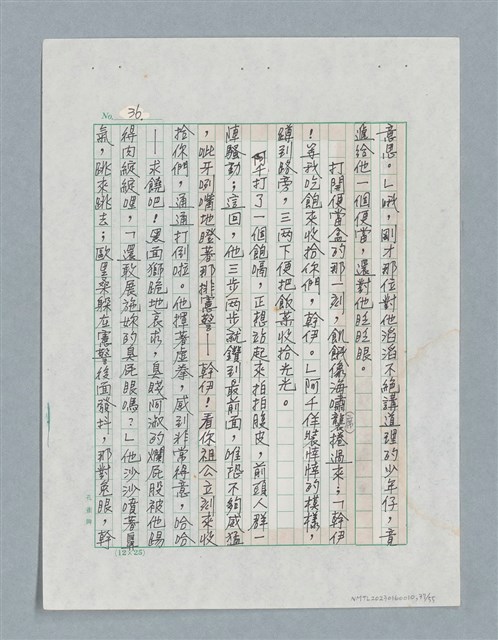 No. 36.
意思。」哦，剛才那位對他滔滔不絕講道理的少年仔，竟
遞給他一個便當，還對他眨眨眼。
打開便當盒的那一刻，飢餓像海嘯襲捲過來；「幹伊
！等我吃飽來收拾你們，幹伊。」阿千佯裝悻悻的模樣，
蹲到路旁，三兩下便把飲菜收拾光光。
阿千打了一個飽嗝，正想站起來拍拍腹皮，前頭人群一
陣騷動；這回，他三步兩步就鑽到最前面，唯恐不夠威猛
，呲牙咧嘴地瞪著那排憲警——幹伊！看你祖公立刻來收
拾你們，通通打倒啦。他揮著虛拳，感到非常得意，哈哈
——求饒吧！黑面獅跪地哀求，臭賤阿淑的爛屁股被他踢
得肉綻綻哩，「還敢展施妳的臭屁眼嗎？」他沙沙噴著鼻
氣，跳來跳去；歐里桑躲在憲警後面發抖，那對兔眼，幹
孔雀牌
(12×25)
NMTL20230160010,37/45